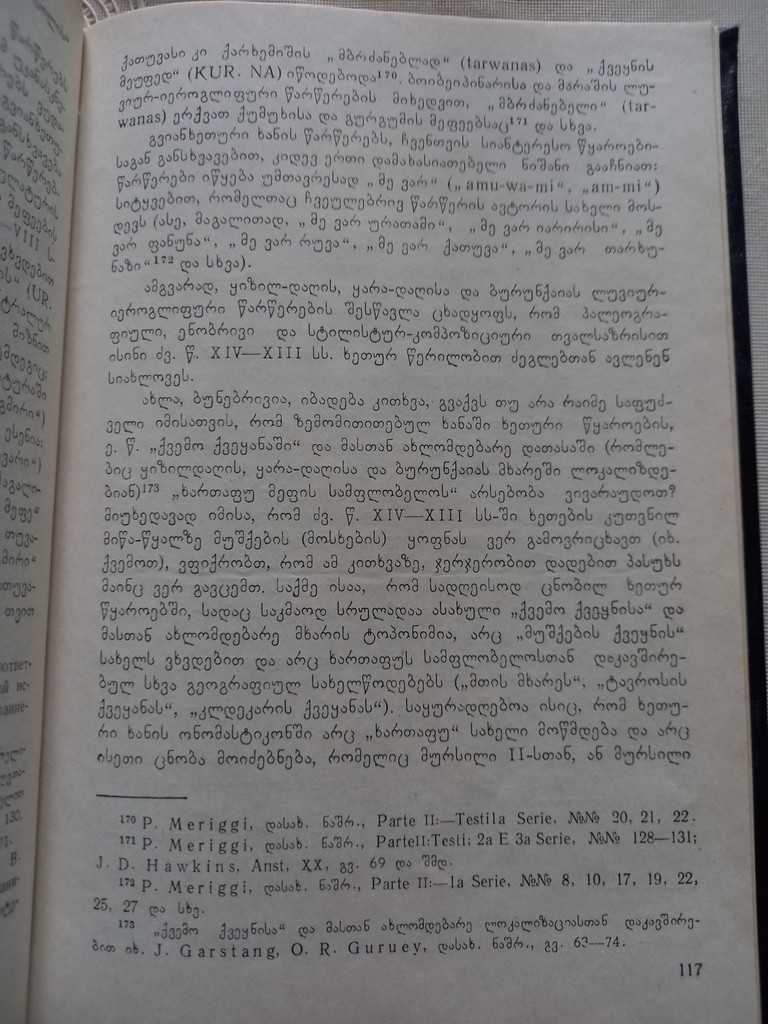 ქათუვასი კი ქარხემიშის „მბრძანებლად“ (tarwanas) და „ქვეყნის
მეუფედ“ (KUR. NA) იწოდებოდა¹⁷⁰. ბოიბეიპინარისა და მარაშის ლუ-
ვიურ-იეროგლიფური წარწერების მიხედვით, „მბრძანებელი“ (tar-
wanas) ერქვათ ქუმუხისა და გურგუმის მეფეებსაც¹⁷¹ და სხვა.
გვიანხეთური ხანის წარწერებს, ჩვენთვის საინტერესო წყაროები-
საგან განსხვავებით, კიდევ ერთი დამახასიათებელი ნიშანი გააჩნიათ:
წარწერები იწყება უმთავრესად „მე ვარ“ („amu-wa-mi“, „am-mi“)
სიტყვებით, რომელთაც ჩვეულებრივ წარწერის ავტორის სახელი მოს-
დევს (ასე, მაგალითად, „მე ვარ ურათამი“, „მე ვარ იარირისი“, „მე
ვარ ფანუნა“, „მე ვარ რუვა“, „მე ვარ ქათუვა“, „მე ვარ თარხუ-
ნაზი“¹⁷² და სხვა).
ამგვარად, ყიზილ-დაღის, ყარა-დაღისა და ბურუნქაიას ლუვიურ-
იეროგლიფური წარწერების შესწავლა ცხადყოფს, რომ პალეოგრა-
ფიული, ენობრივი და სტილისტურ-კომპოზიციური თვალსაზრისით
ისინი ძვ. წ. XIV—XIII სს. ხეთურ წერილობით ძეგლებთან ავლენენ
სიახლოვეს.
ახლა, ბუნებრივია, იბადება კითხვა, გვაქვს თუ არა რაიმე საფუძ-
ველი იმისათვის, რომ ზემომითითებულ ხანაში ხეთური წყაროების,
ე. წ. „ქვემო ქვეყანაში“ და მასთან ახლომდებარე დათასაში (რომლე-
ბიც ყიზილდაღის, ყარა-დაღისა და ბურუნქაიას მხარეში ლოკალიზდე-
ბიან)¹⁷³ „ხართაფუ მეფის სამფლობელოს“ არსებობა ვივარაუდოთ?
მიუხედავად იმისა, რომ ძვ. წ. XIV—XIII სს-ში ხეთების კუთვნილ
მიწა-წყალზე მუშქების (მოსხების) ყოფნას ვერ გამოვრიცხავთ (იხ.
ქვემოთ), ვფიქრობთ, რომ ამ კითხვაზე, ჯერჯერობით დადებით პასუხს
მაინც ვერ გავცემთ. საქმე ისაა, რომ სადღეისოდ ცნობილ ხეთურ
წყაროებში, სადაც საკმაოდ სრულადაა ასახული „ქვემო ქვეყნისა“ და
მასთან ახლომდებარე მხარის ტოპონიმია, არც „მუშქების ქვეყნის“
სახელს ვხვდებით და არც ხართაფუს სამფლობელოსთან დაკავშირე-
ბულ სხვა გეოგრაფიულ სახელწოდებებს („მთის მხარეს“, „ტავროსის
ქვეყანას“, „კლდეკარის ქვეყანას“). საყურადღებოა ისიც, რომ ხეთუ-
რი ხანის ონომასტიკონში არც „ხართაფუ“ სახელი მოწმდება და არც
ისეთი ცნობა მოიძებნება, რომელიც მურსილი II-სთან, ან მურსილი
¹⁷⁰ P. Meriggi, დასახ. ნაშრ., Parte II:—Testila Serie, №№ 20, 21, 22.
¹⁷¹ P. Meriggi, დასახ. ნაშრ., ParteII:Testi; 2a E 3a Serie, №№ 128—131;
J. D. Hawkins, Anst, XX, გვ. 69 და შმდ.
¹⁷² P. Meriggi, დასახ. ნაშრ., Parte II:—1a Serie, №№ 8, 10, 17, 19, 22,
25, 27 და სხვ.
¹⁷³ „ქვემო ქვეყნისა“ და მასთან ახლომდებარე ლოკალიზაციასთან დაკავშირე-
ბით იხ. J. Garstang, O. R. Guruey, დასახ. ნაშრ., გვ. 63—74.
117